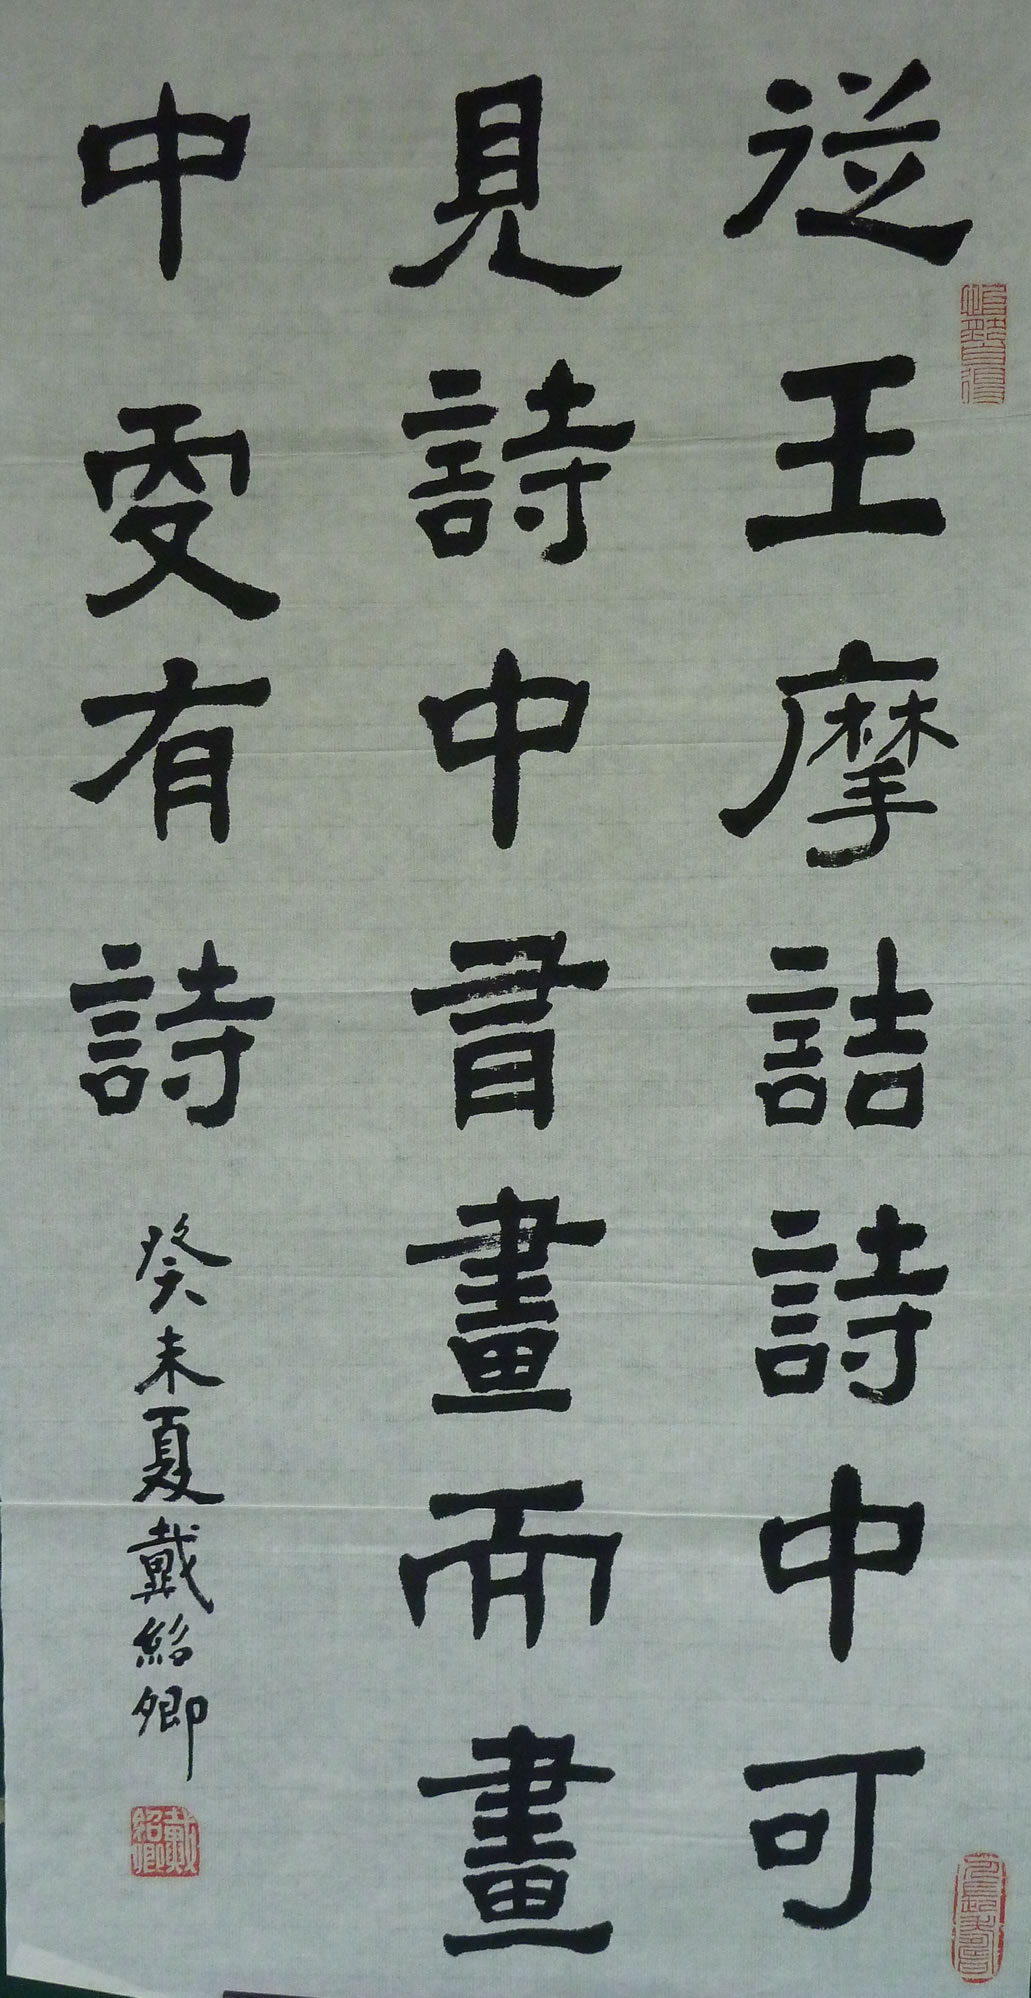 從王摩詰詩中可
見詩中畫而畫
中更有詩
癸未夏戴紹卿
戴紹卿